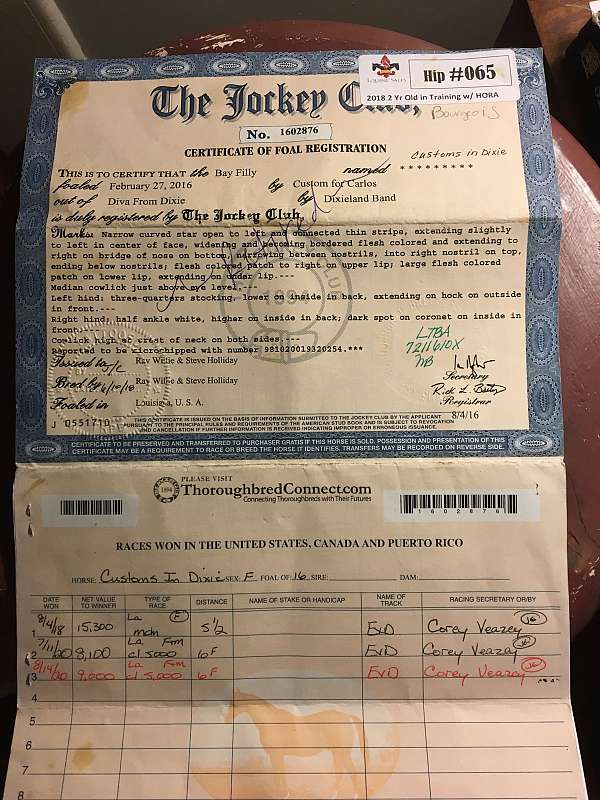 EQUINE SALES
Hip #065
2018 2 Yr Old in Training w/ HORA
Bourgois
The Jockey Club,
No. 1602876
CERTIFICATE OF FOAL REGISTRATION
Customs in Dixie
THIS IS TO CERTIFY THAT the Bay Filly named * * * * * * * * *
foaled February 27, 2016 by Custom for Carlos
out of Diva From Dixie by Dixieland Band
is duly registered by The Jockey Club,
Marks: Narrow curved star open to left and connected thin stripe, extending slightly
to left in center of face, widening and becoming bordered flesh colored and extending to
right on bridge of nose on bottom, narrowing between nostrils, into right nostril on top,
ending below nostrils; flesh colored patch to right on upper lip; large flesh colored
patch on lower lip, extending on under lip.---
Median cowlick just above eye level.---
Left hind: three-quarters stocking, lower on inside in back, extending on hock on outside
in front.---
Right hind: half ankle white, higher on inside in back; dark spot on coronet on inside in
front.---
Cowlick high at crest of neck on both sides.---
Reported to be microchipped with number 981020019320254.***
LTBA
721161OX
NB
Issued to Ray Willie & Steve Holliday
Secretary
Bred by Ray Willie & Steve Holliday
Registrar
Foaled in Louisiana, U. S. A.
8/4/16
J 0551710
THIS CERTIFICATE IS ISSUED ON THE BASIS OF INFORMATION SUBMITTED TO THE JOCKEY CLUB BY THE APPLICANT
PURSUANT TO THE PRINCIPAL RULES AND REQUIREMENTS OF THE AMERICAN STUD BOOK AND IS SUBJECT TO REVOCATION
AND CANCELLATION IF FURTHER INFORMATION IS RECEIVED INDICATING IMPROPER OR ERRONEOUS ISSUANCE.
CERTIFICATE TO BE PRESERVED AND TRANSFERRED TO PURCHASER GRATIS IF THIS HORSE IS SOLD. POSSESSION AND PRESENTATION OF THIS
CERTIFICATE MAY BE A REQUIREMENT TO RACE OR BREED THE HORSE IT IDENTIFIES. TRANSFERS MAY BE RECORDED ON REVERSE SIDE.
PLEASE VISIT
1894
ThoroughbredConnect.com
Connecting Thoroughbreds with Their Futures
1602876
RACES WON IN THE UNITED STATES, CANADA AND PUERTO RICO
HORSE: Customs In Dixie SEX: F FOAL OF: 16 SIRE: DAM:
DATE WON NET VALUE TO WINNER TYPE OF RACE DISTANCE NAME OF STAKE OR HANDICAP NAME OF TRACK RACING SECRETARY OR/BY
1 8/4/18 15,300 La F mdn 5½ EvD Corey Veazey
2 7/11/20 8,100 La F&m cl 5000 6F EvD Corey Veazey
3 8/14/20 9,000 La F&m cl 5,000 6F EvD Corey Veazey
4
5
6
7
8